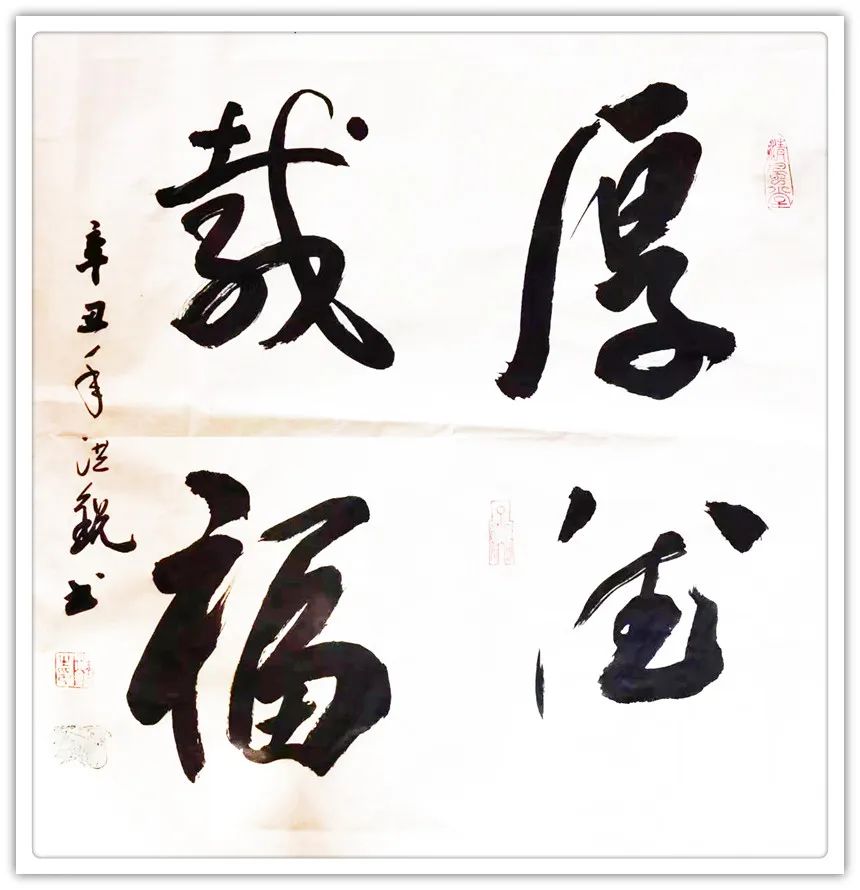 厚德
載福
辛丑年洪鋭书